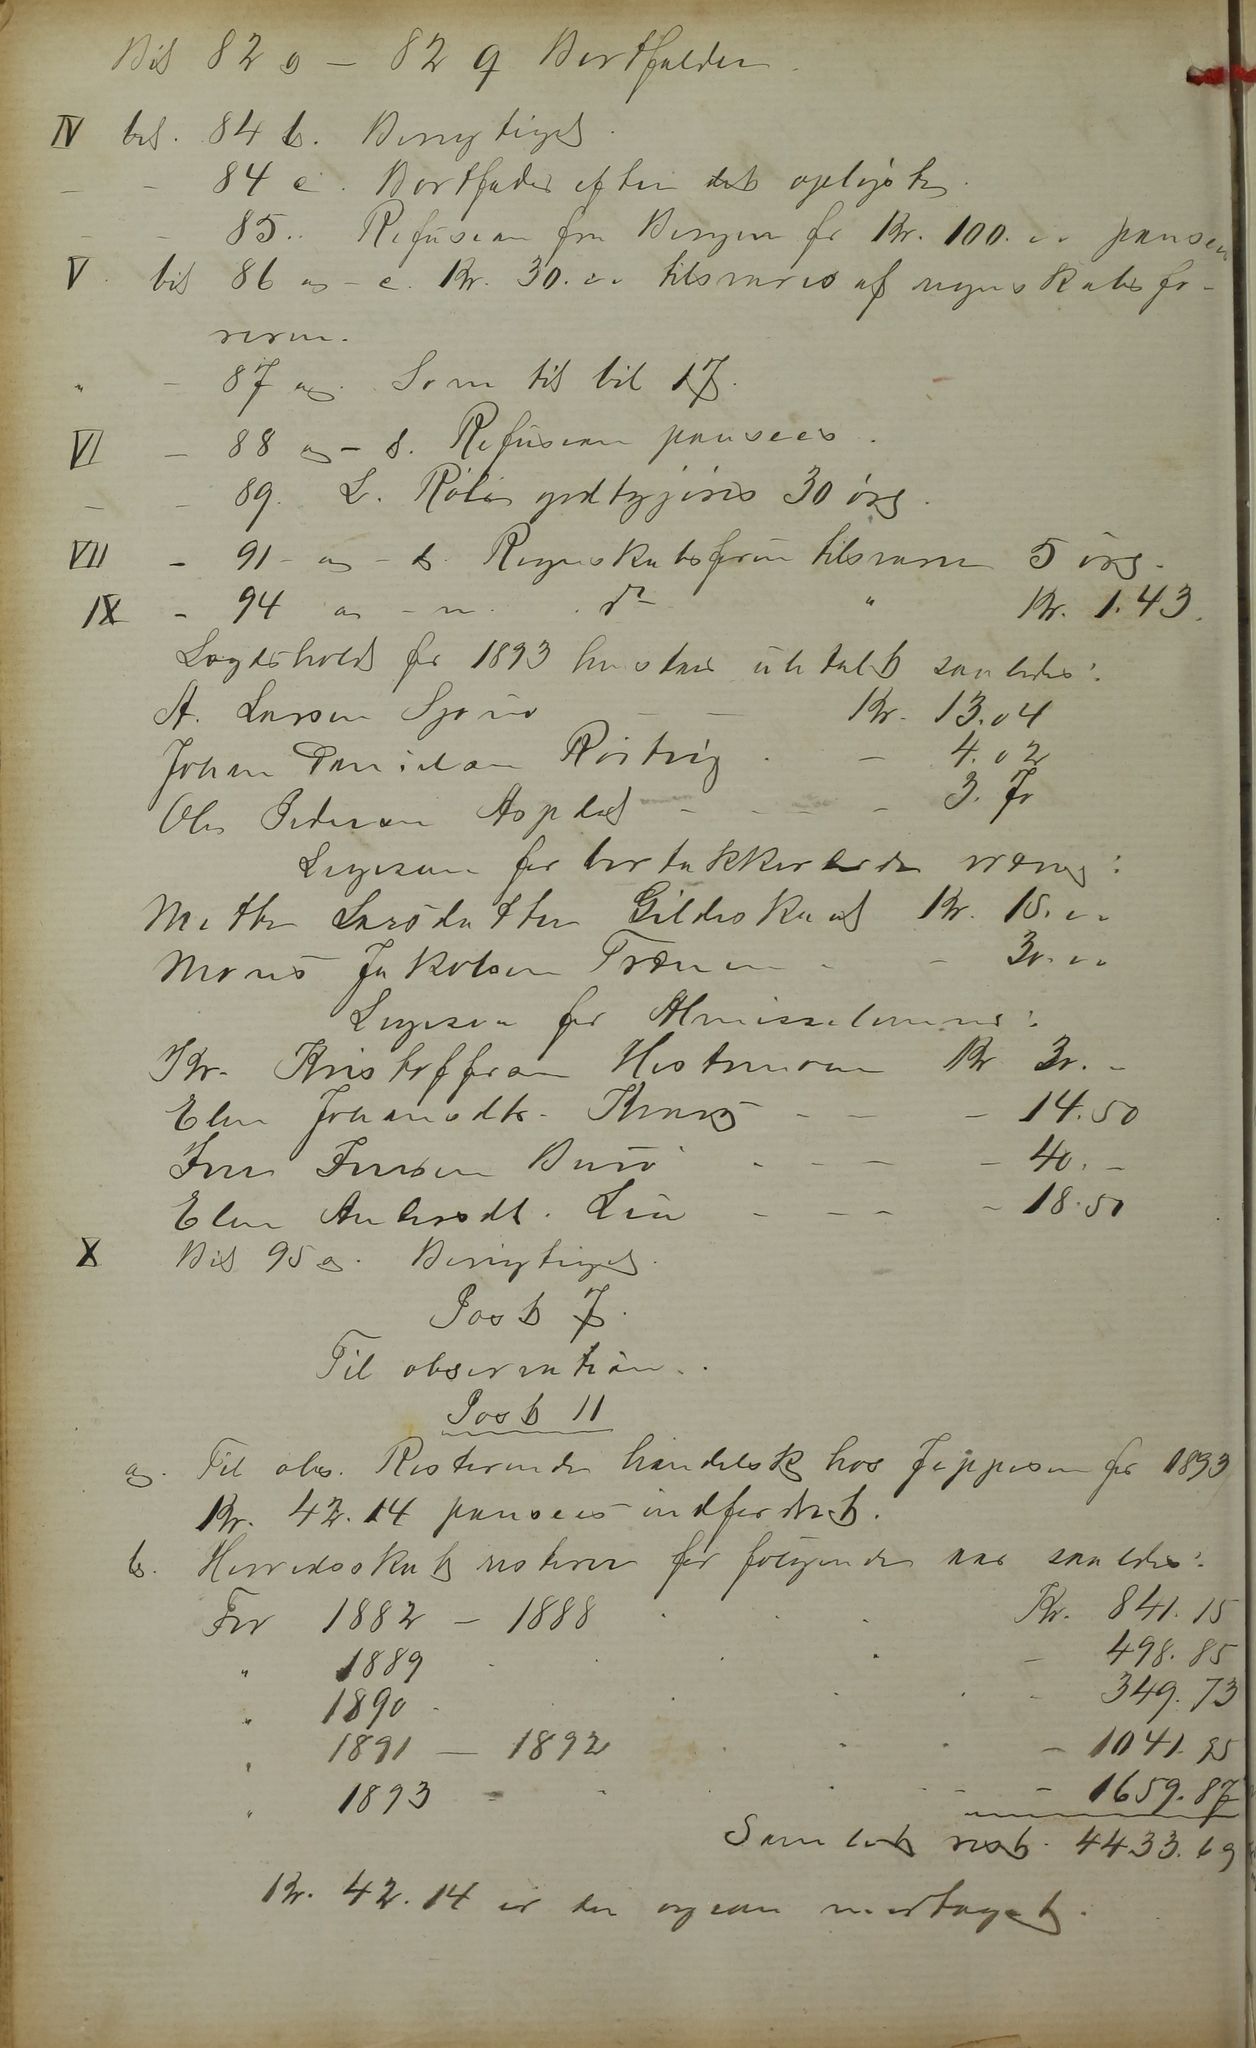 Bil 82 o – 82 q Bortfalder.
IV bil. 84 b. Berigtiget.
– – 84 c. Bortfader efter det oplyste.
– – 85.. Refusion fra Bergen for Kr. 100.00 pansees
V. bil 86 a – c. Kr. 30.00 tilsvares af regnskabsfø-
reren.
" – 87 a. Som til bil 17.
VI – 88 a – d. Refusion pansees.
– – 89. L. Röli godtgjöres 30 öre.
VII – 91 – a – d. Regnskabsfører tilsvarer 5 öre.
IX – 94 a – n. do " Kr. 1.43.
Lægdshold for 1893 henstaar übetalt saaledes:
A. Larsen Sjona – – Kr. 13.04
Johan Danielsen – – 4.02
Ole Pedersen – – – – 3.70
Ligesaa for bortakkorderede:
Mette Larsdatter Gildeskaal Kr. 15.00
Mons Jakobsen Trænen – – 30.00
Ligesaa for Almisselemmer:
Kr. Kristoffersen Hestmoen Kr 30.–
Elen Johansdtr. – – – 14.50
Jens Jensen – – – – 40.–
Elen Andersdt. Lia – – – – 18.50
X Bil 95 a. Berigtiget.
Post 7.
Til observation.
Post 11
a. Til obs. Resterende handelsk hos Jeppesen for 1893
Kr. 42.14 pansees indfordret.
b. Herredsskat resterer for følgende aar saaledes:
For 1882 – 1888 . . . Kr. 841.15
" 1889 . . . – 498.85
" 1890 . . . . – 349.73
" 1891 – 1892 . . . – 1041.95
" 1893 – . . . – 1659.87
Samlet rest. 4433.69
Kr. 42.14 er den ogsaa medtaget.